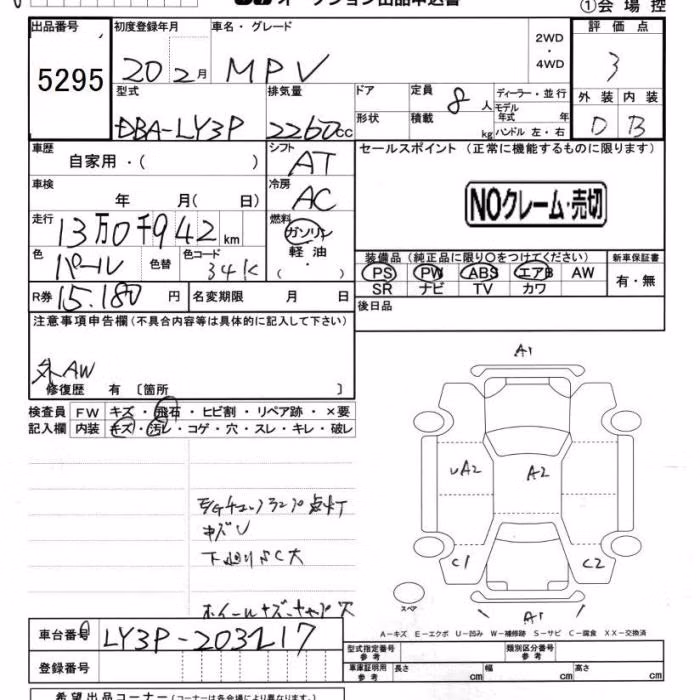 オークション出品申込書
①会場控
出品番号
5295
初度登録年月
20 2月
車名・グレード
MPV
2WD
・
4WD
評価点
3
外装 内装
D B
型式
DBA-LY3P
排気量
2260cc
ドア
形状
定員
8人
積載
kg
ディーラー・並行
モデル年式 年
ハンドル 左・右
車歴
自家用・( )
シフト
AT
セールスポイント (正常に機能するものに限ります)
NOクレーム・売切
車検
年 月( 日)
冷房
AC
走行
13万0千942km
燃料
ガソリン
軽油
( ・ )
色
パール
色替
色コード
34K
装備品 (純正品に限り○をつけてください)
PS PW ABS エアB AW
SR ナビ TV カワ
新車保証書
有・無
R券 15.180円
名変期限 月 日
後日品
注意事項申告欄 (不具合内容等は具体的に記入して下さい)
外AW
修復歴 有 〔箇所 〕
検査員 FW キズ・飛石・ヒビ割・リペア跡・×要
記入欄 内装 キズ・汚レ・コゲ・穴・スレ・キレ・破レ
E/Gチェックランプ点灯
キズU
下廻りSC大
ホイールキズ
穴
A1
UA2
A2
C1
C2
A1
スペア
A-キズ E-エクボ U-凹み W-補修跡 S-サビ C-腐食 XX-交換済
車台番号
LY3P-203217
登録番号
型式指定番号
参考
類別区分番号
参考
車庫証明用
参考
長さ cm
幅 cm
高さ cm
希望出品コーナー (コーナーは各会場により異なります。)